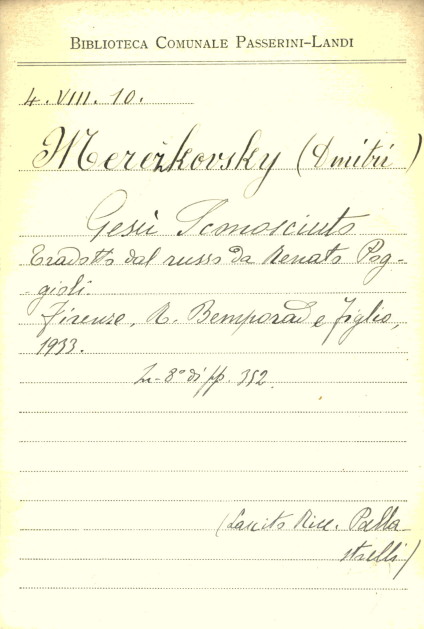 BIBLIOTECA COMUNALE PASSERINI-LANDI
4. VIII. 10.
Merezkovsky (Dmitri)
Gesù Sconosciuto
Tradotto dal russo da Renato Pog-
-gioli.
Firenze, R. Bemporad e figlio,
1933.
In-8° di pp. 352.
(Lascito Ricc. Palla
strelli)